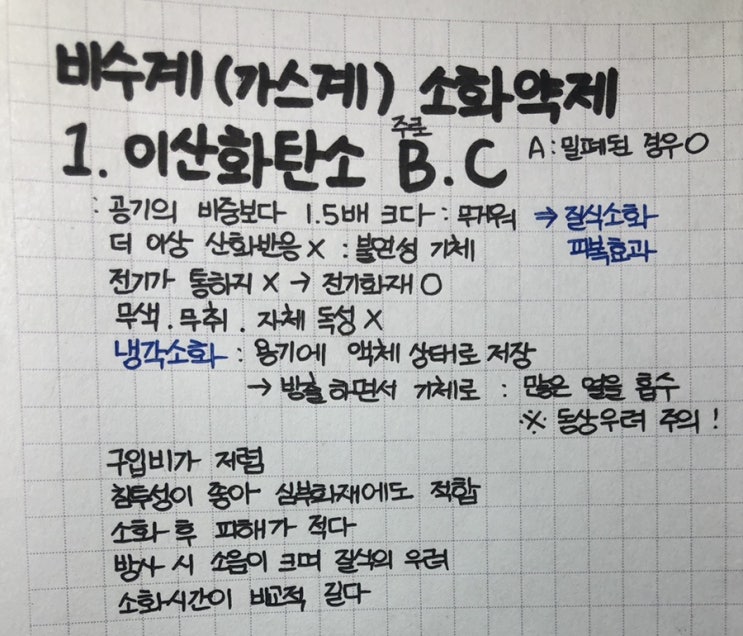 비수계(가스계) 소화약제
주로
1. 이산화탄소 B.C A:밀폐된 경우O
: 공기의 비중보다 1.5배 크다 : 무거워 ⇒ 질식소화
더 이상 산화반응 X : 불연성 기체 피복효과
전기가 통하지 X → 전기화재 O
무색.무취. 자체 독성 X
냉각소화 : 용기에 액체 상태로 저장
→ 방출하면서 기체로 : 많은 열을 흡수
※ 동상우려 주의!
구입비가 저렴
침투성이 좋아 심부화재에도 적합
소화 후 피해가 적다
방사 시 소음이 크며 질식의 우려
소화시간이 비교적 길다